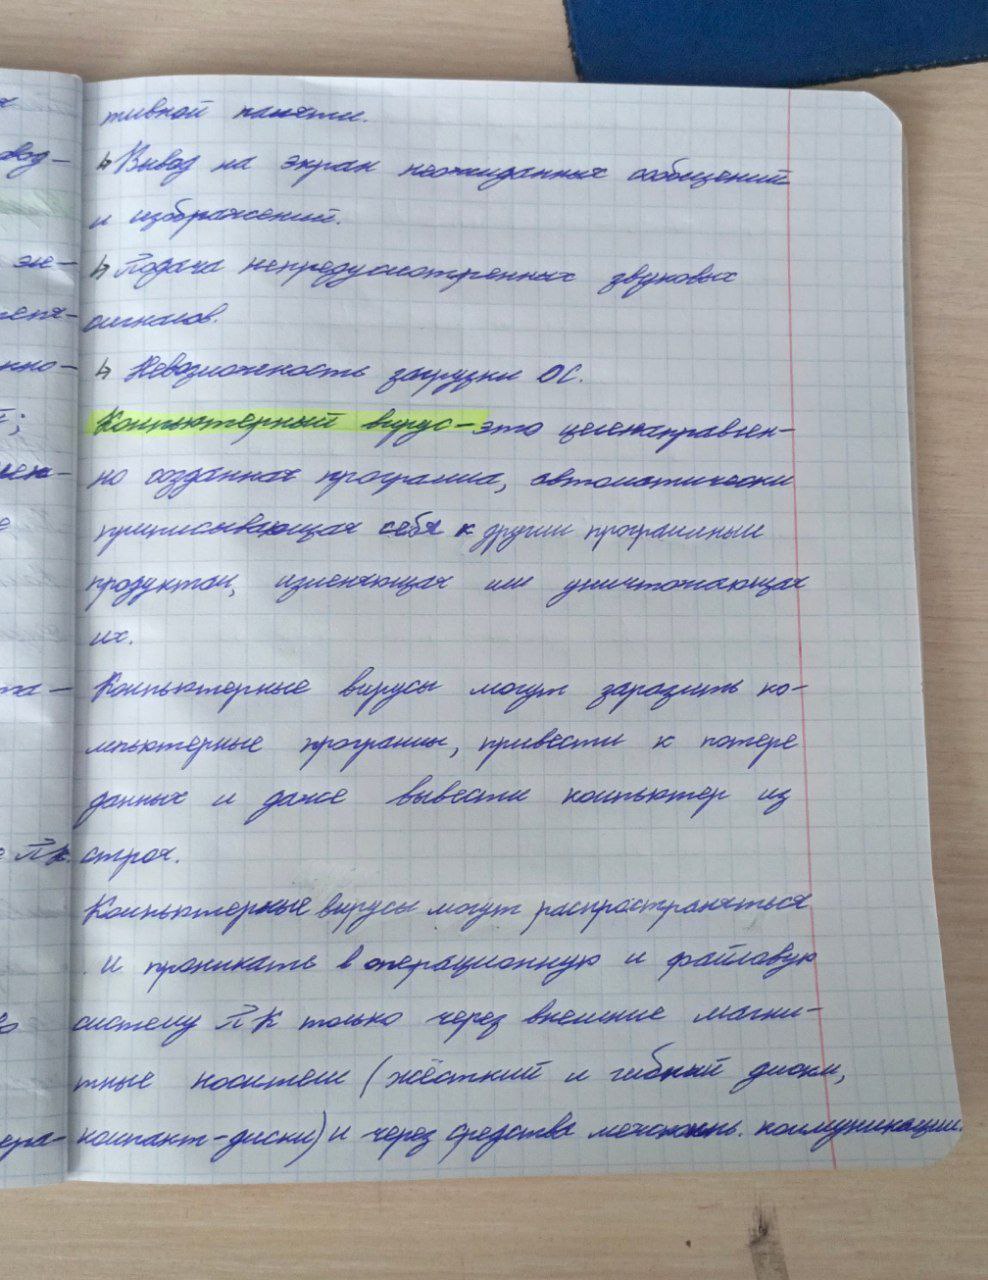 тивной памяти.
↳ Вывод на экран неожиданных сообщений
и изображений.
↳ Подача непредусмотренных звуковых
сигналов.
↳ Невозможность загрузки ОС.
Компьютерный вирус - это целенаправлен-
но созданная программа, автоматически
приписывающая себя к другим программным
продуктам, изменяющая или уничтожающая
их.
Компьютерные вирусы могут заразить ко-
мпьютерные программы, привести к потере
данных и даже вывести компьютер из
строя.
Компьютерные вирусы могут распространяться
и проникать в операционную и файловую
систему ПК только через внешние магни-
тные носители (жёсткий и гибкий диски,
компакт-диски) и через средства коммуникации.